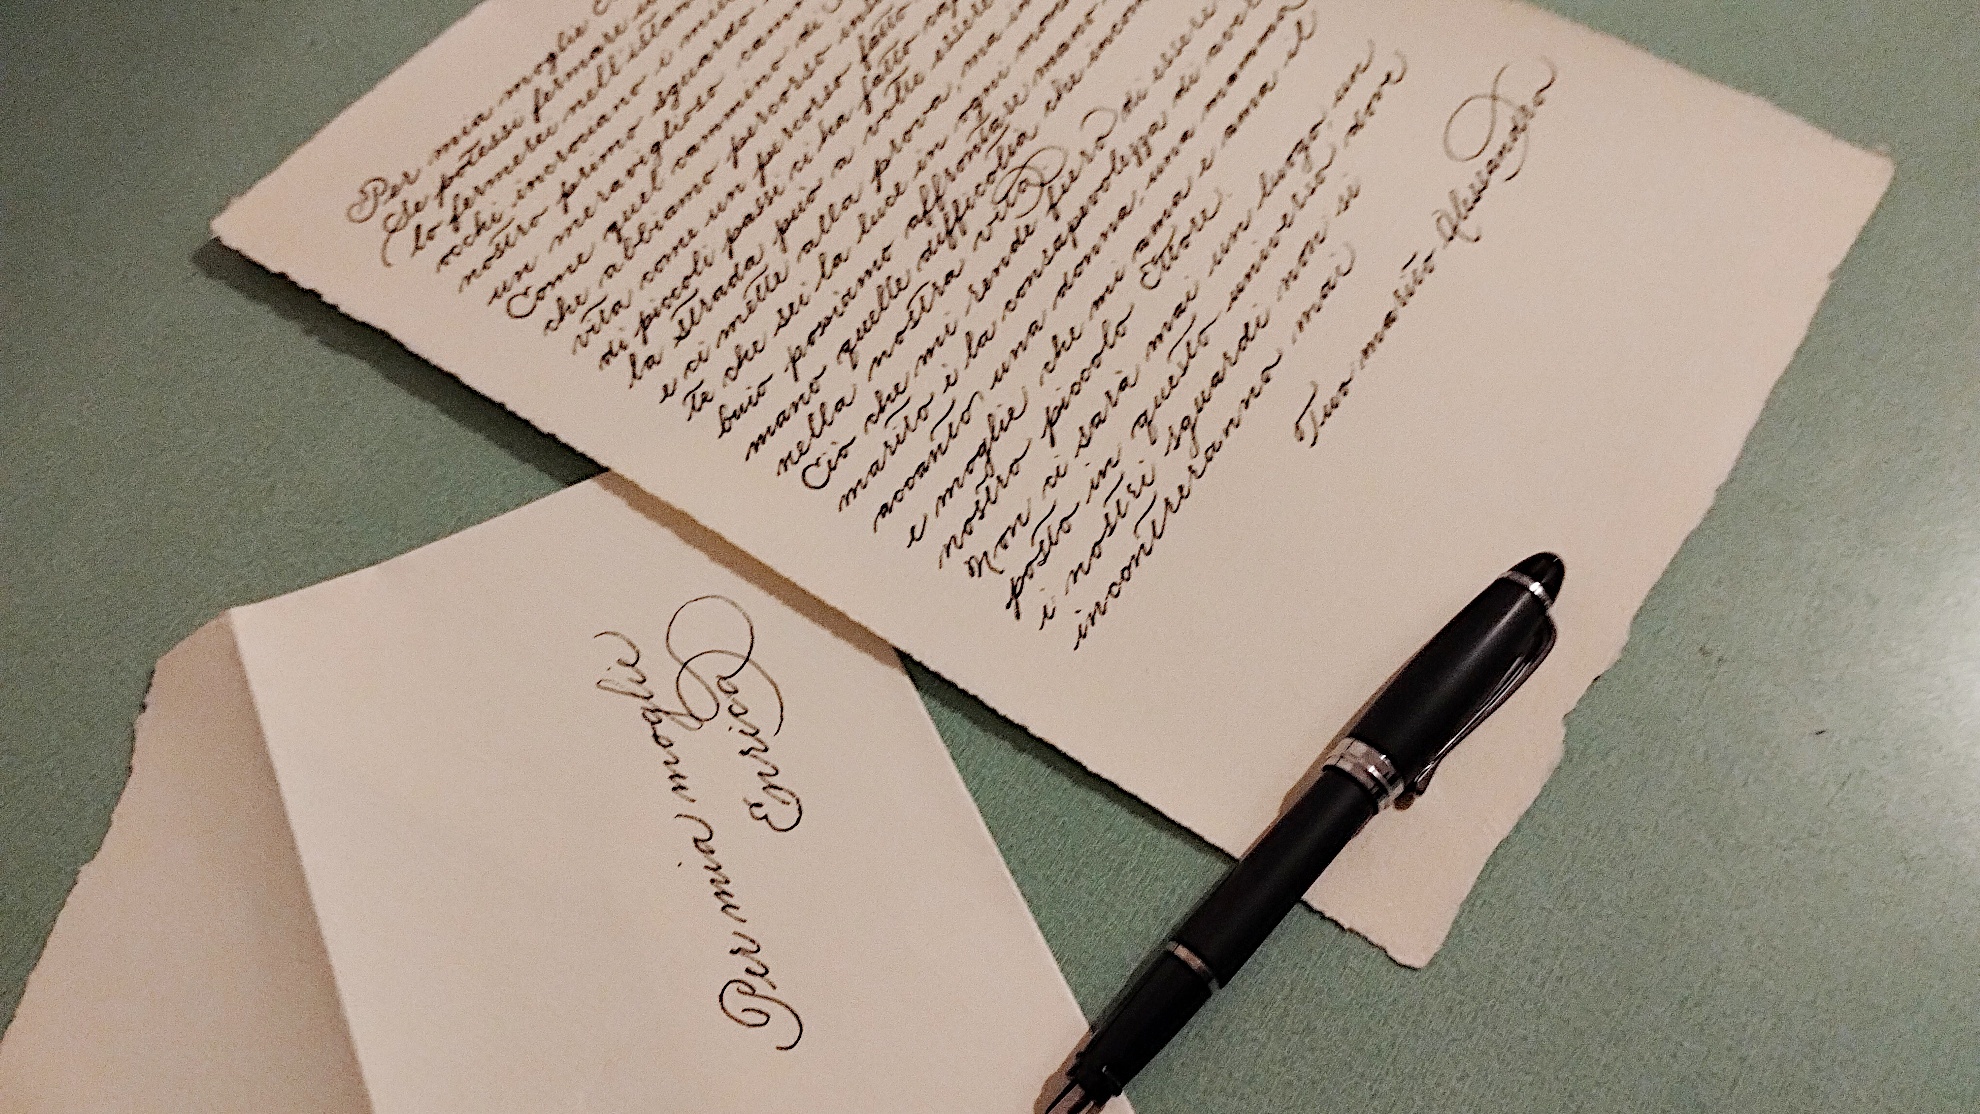 Per mia moglie
Se potessi fermare
lo fermerei nell'istante
occhi incrociano i miei
nostro primo sguardo
un meraviglioso cammino di
Come quel cammino
che abbiamo percorso
vita come un percorso fatto
di piccoli passi ci ha fatto
la strada può a volte essere
e ci mette alla prova, ma in
te che sei la luce in ogni
buio possiamo affrontare mano
mano quelle difficoltà che
nella nostra vita
Ciò che mi rende fiero di essere
marito è la consapevolezza di
accanto una donna, una mamma
e moglie che mi ama e ama il
nostro piccolo Ettore.
Non ci sarà mai un luogo, un
posto in questo universo dove
i nostri sguardi non si
incontreranno mai
Tuo marito Alessandro
Per mia moglie
Enrica